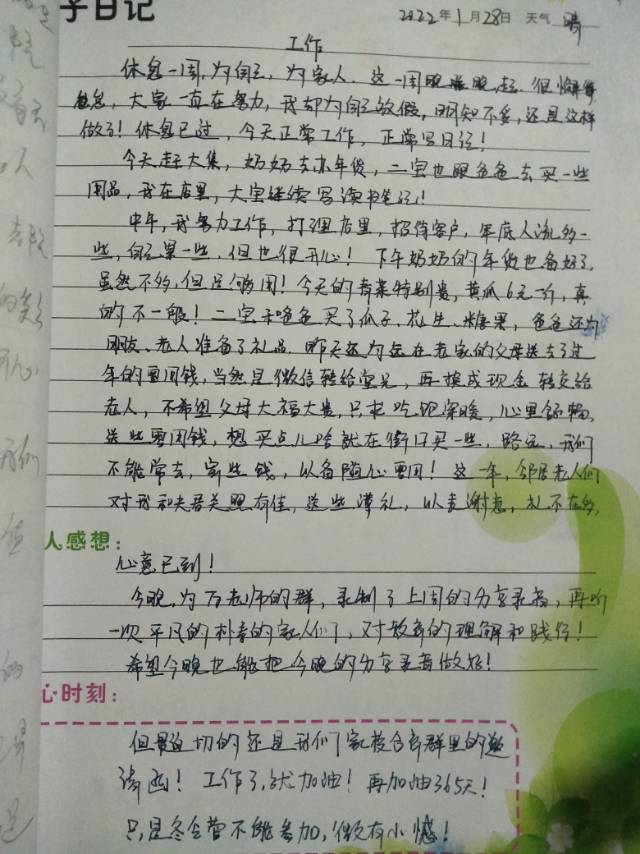 子日记
2022年1月28日 天气 晴
工作
休息一周,为自己,为家人.这一周晚睡晚起.但懒得
,大家一直在努力,我却为自己放假,明知不妥,还是这样
做了!休息已过,今天正常工作,正常写日记!
今天赶大集,奶奶去办年货,二宝也跟爸爸去买一些
用品,我在店里,大宝继续写读书笔记!
中午,我努力工作,打理店里,招待客户,年底人流多一
些,自己累一些,但也很开心!下午奶奶的年货也备好了,
虽然不多,但足够用!今天的青菜特别贵,黄瓜6元一斤,真
的不一般!二宝和爸爸买了瓜子、花生、糖果,爸爸还为
朋友、老人准备了礼品.昨天还为远在老家的父母送去了过
年的零用钱,当然是微信转给堂兄,再换成现金转交给
老人,不希望父母大福大贵,只求吃饱深暖,心里舒畅,
送些零用钱,想买点儿啥就在街口买一些,路远,我们
不能常去,寄些钱,以备随心零用!这一年,邻居老人们
对我和夫君关照有佳,送些薄礼,以表谢意,礼不在多,
人感想:
心意已到!
今晚,为万老师的群,录制了上周的分享录音,再听
一次平凡的朴素的家人们,对教育的理解和践行!
希望今晚也能把今晚的分享录音做好!
心时刻:
但最迫切的还是我们家校合育群里的邀
请函!工作了,就加油!再加油365天!
只是冬令营不能参加,做有小憾!